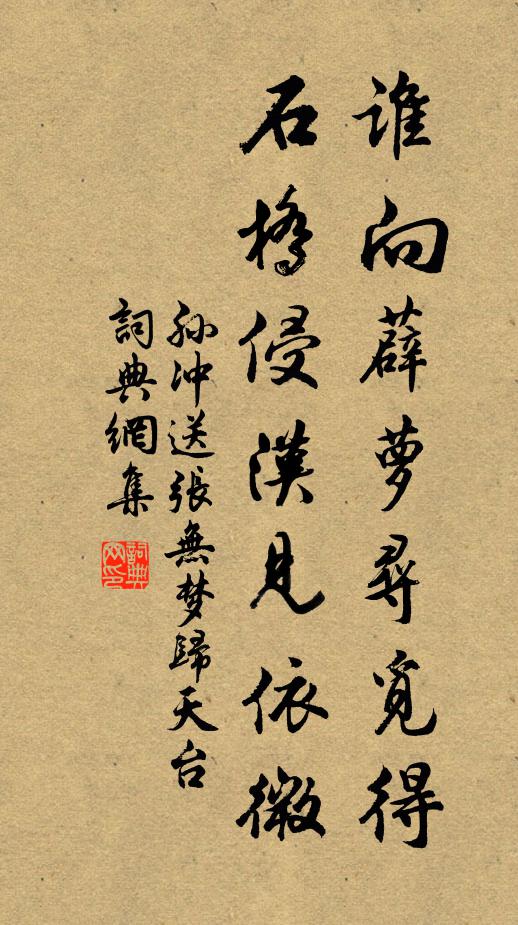 誰向薜蘿尋覓得
石橋侵漢見依微
孙冲送張無梦歸天台
詞典網集
詞典网印